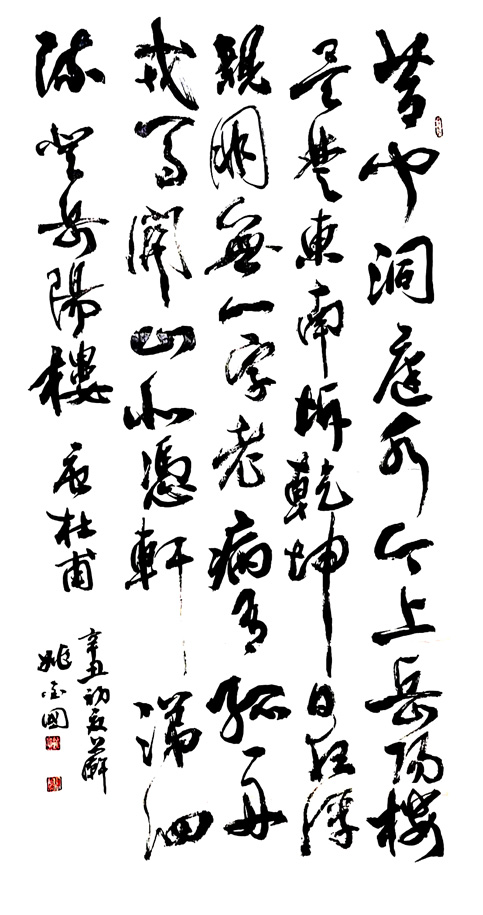 昔聞洞庭水今上岳陽楼
吴楚東南坼乾坤日夜浮
親朋無一字老病有孤舟
戎馬關山北憑軒涕泗
流登岳陽樓唐杜甫
辛丑初夏
姚國